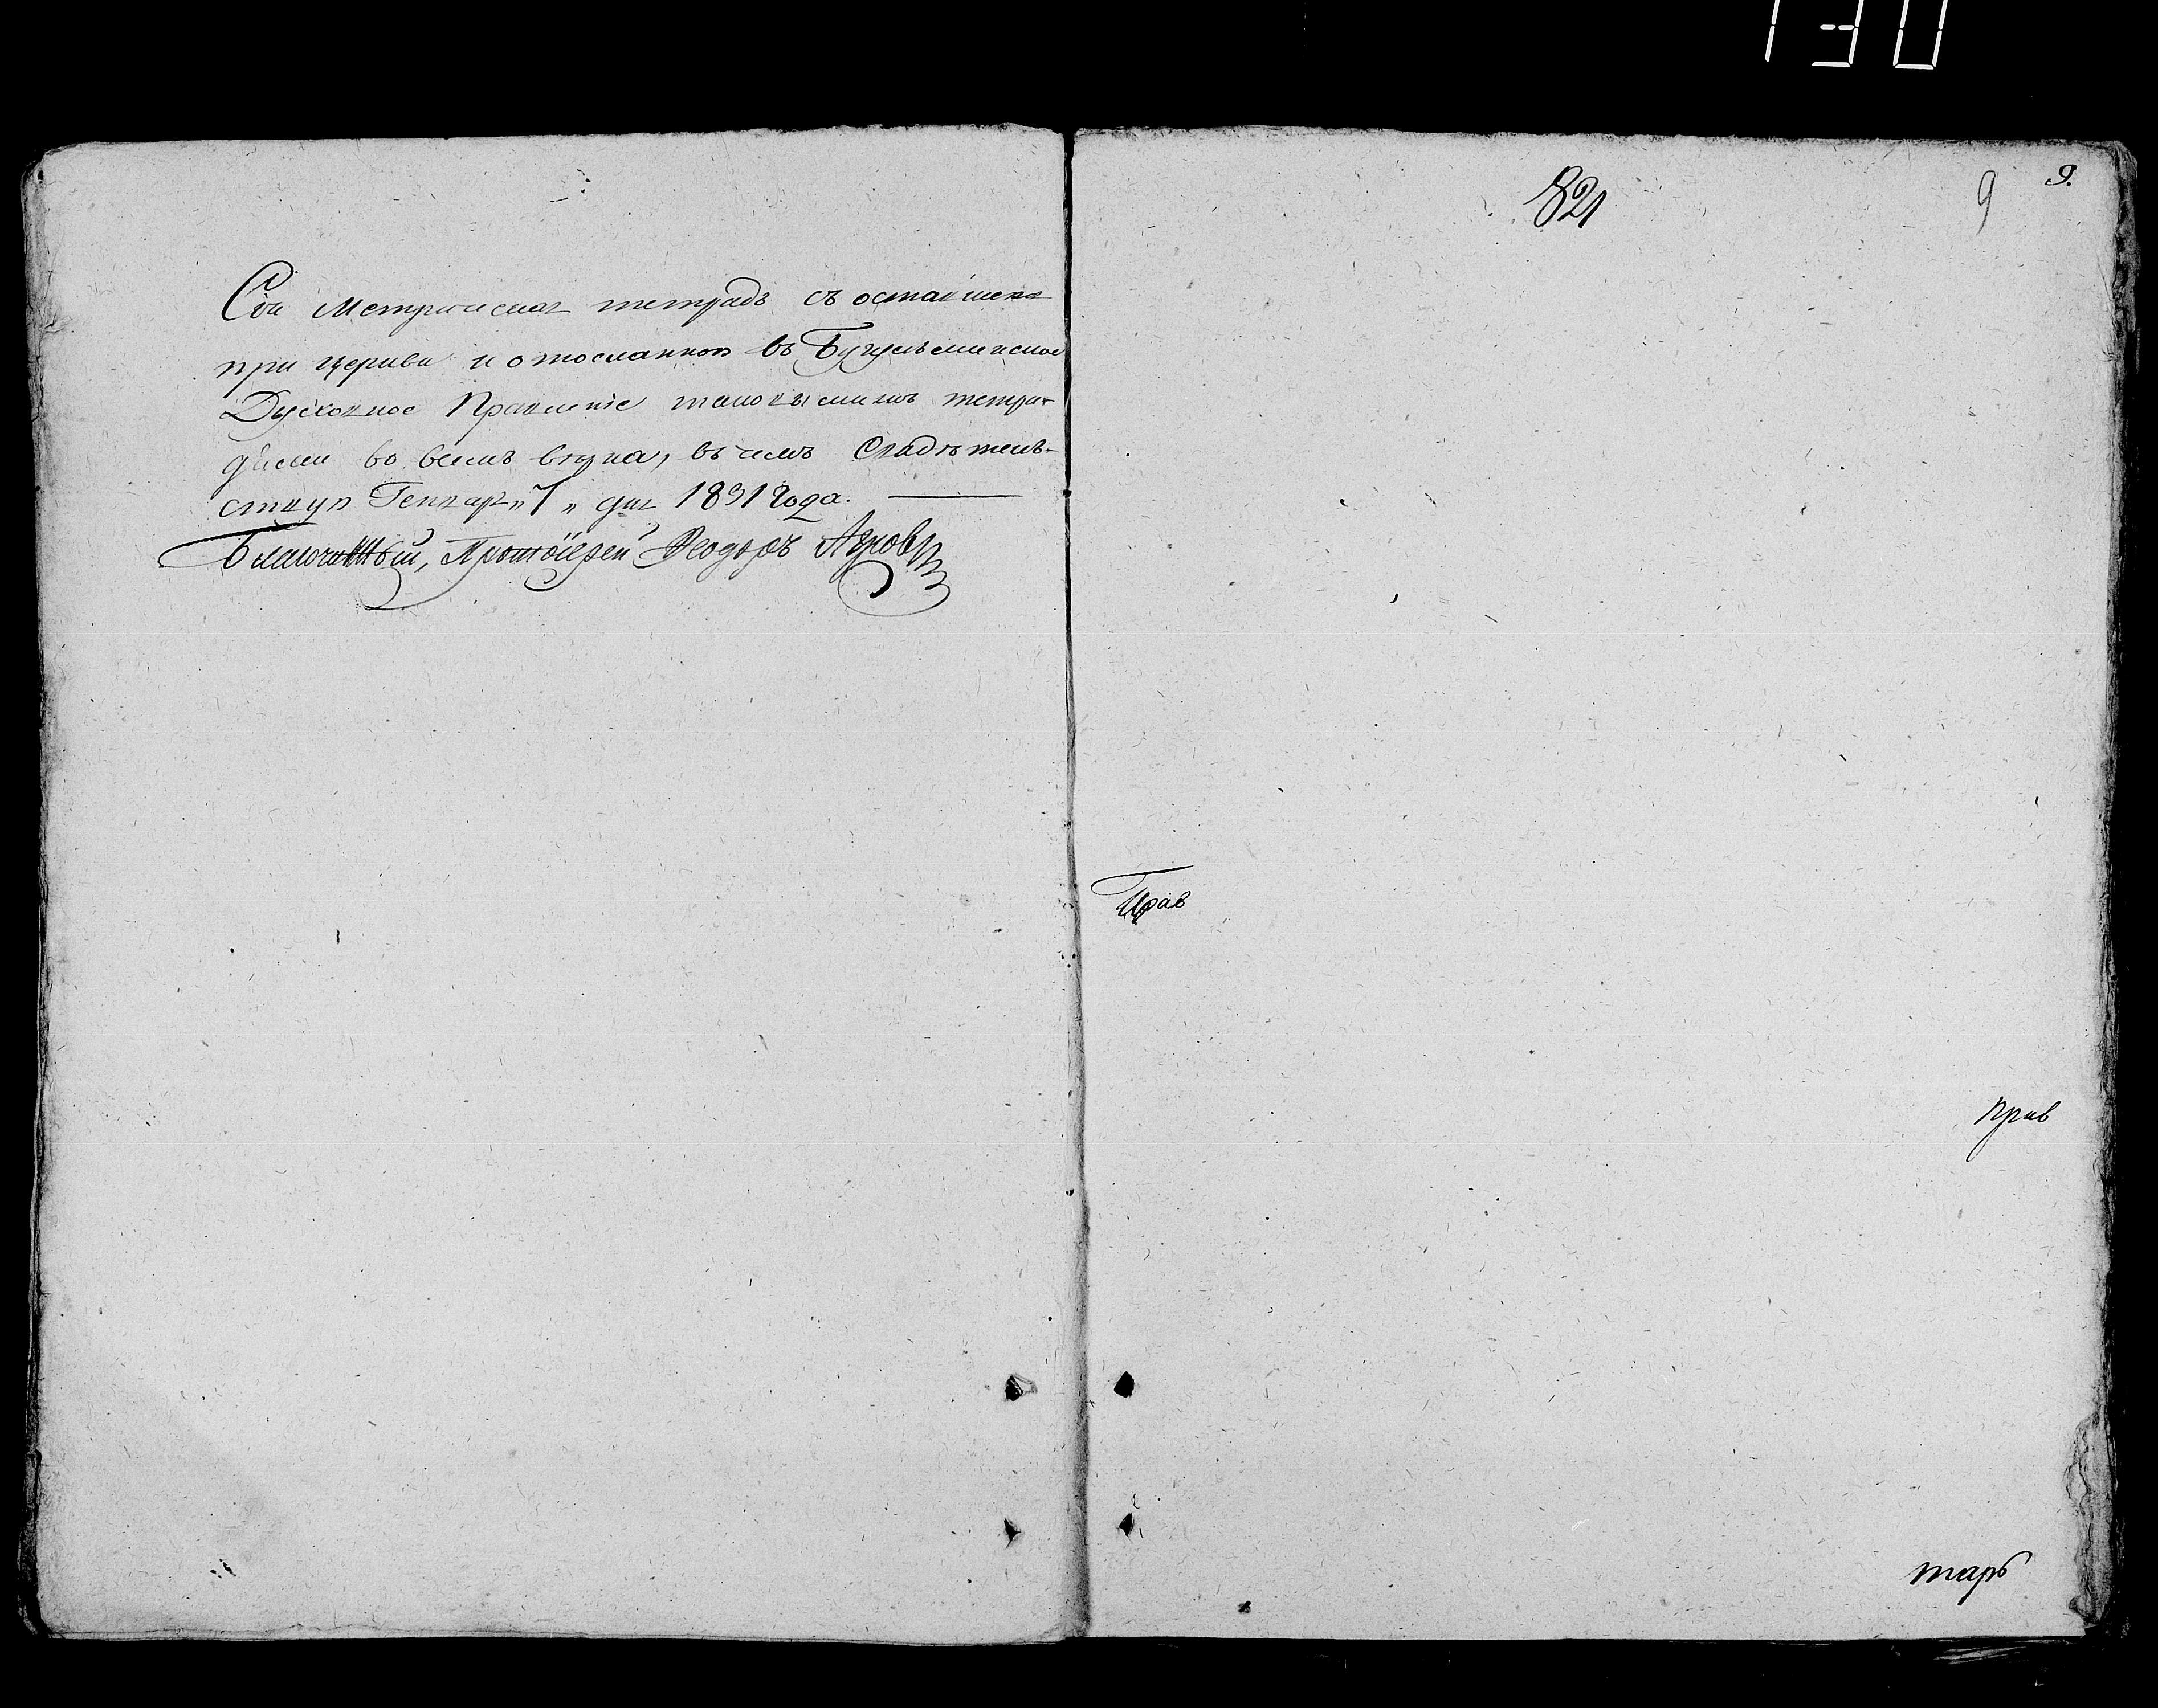 Сiя Метрическая тетрадь съ оставшею
при церкви и отосланною въ Бугульминское
Духовное Правленiе таковыми жъ тетра-
дьми во всемъ вѣрна, въ чемъ Свидѣтель-
ствую Генваря „7„ дня 1831 Года.
Благочинный, Протоiерей Ѳеодоръ
821
9 9.
Прав
прав
тарь
130